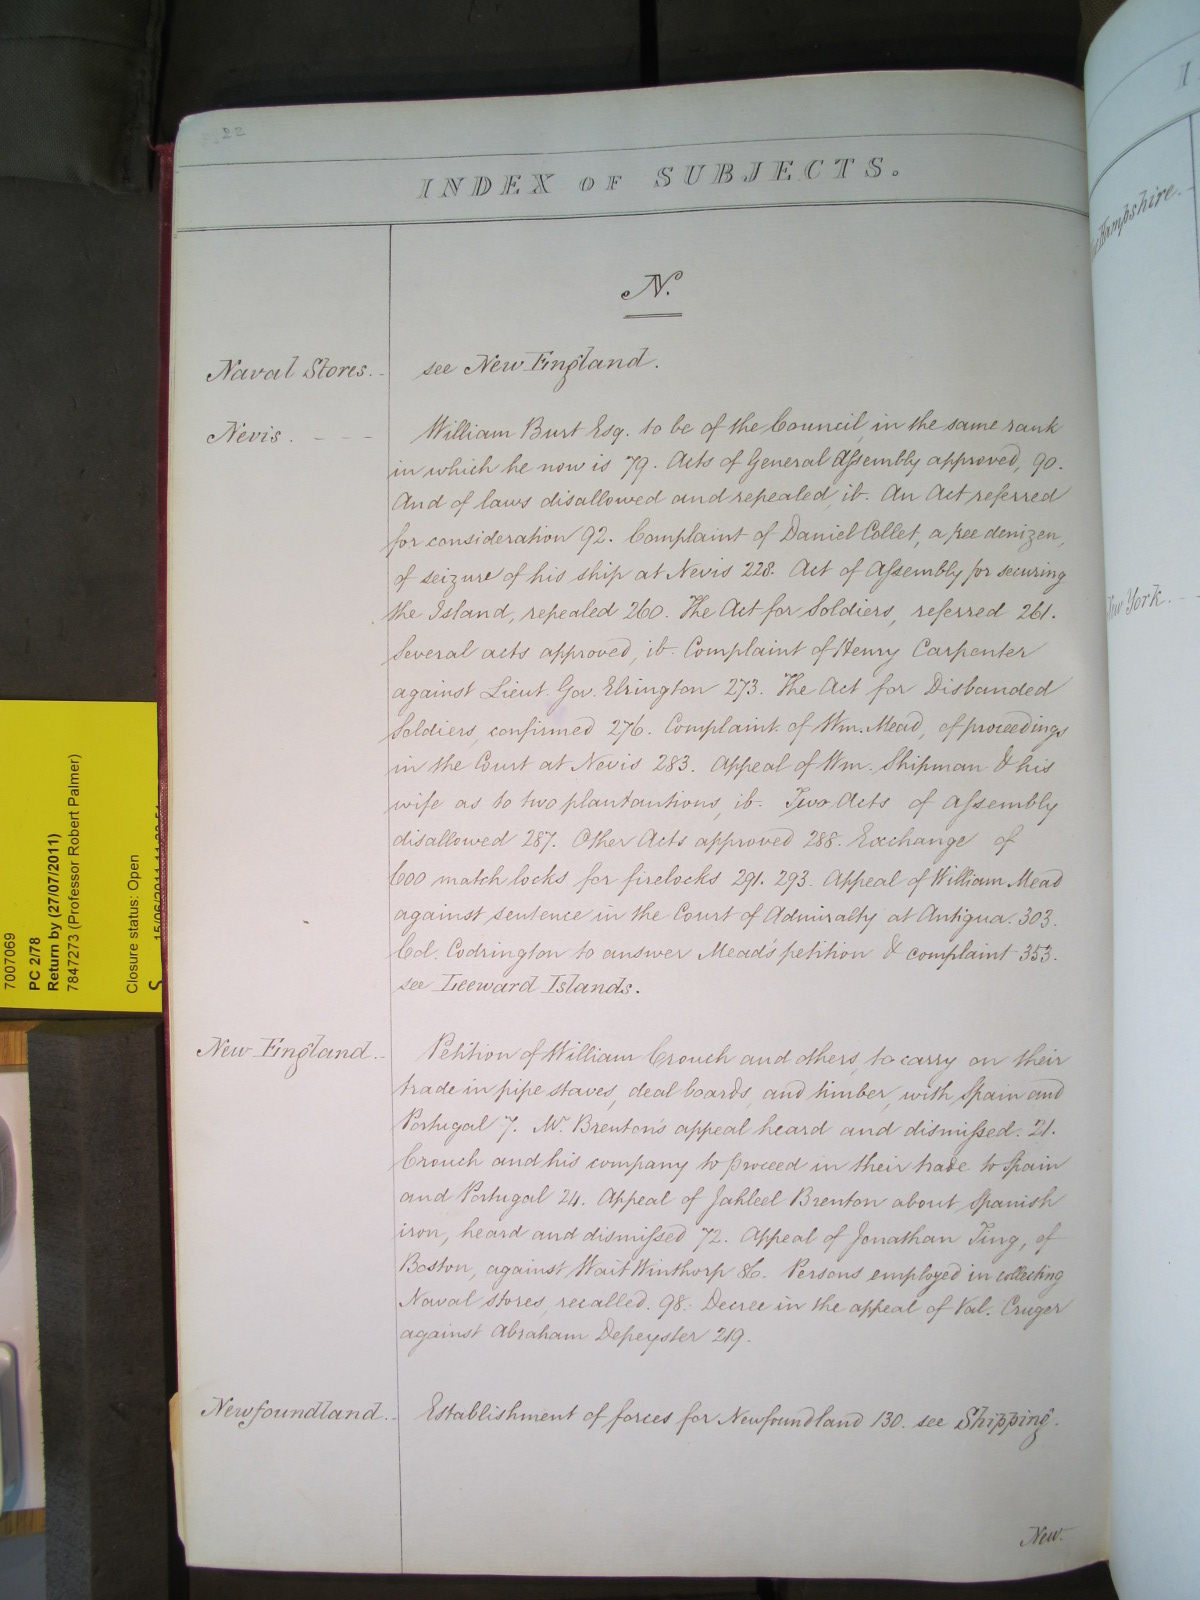 22
INDEX OF SUBJECTS.
N.
Naval Stores. - see New England.
Nevis. - - - William Burt Esq. to be of the Council, in the same rank
in which he now is 79. Acts of General Assembly approved, 90.
And of laws disallowed and repealed, ib. An Act referred
for consideration 92. Complaint of Daniel Collet, a free denizen,
of seizure of his ship at Nevis 228. Act of Assembly for securing
the Island, repealed 260. The Act for Soldiers, referred 261.
Several acts approved, ib. Complaint of Henry Carpenter
against Lieut. Gov. Elrington 273. The Act for Disbanded
Soldiers, confirmed 276. Complaint of Wm. Mead, of proceedings
in the Court at Nevis 283. Appeal of Wm. Shipman & his
wife as to two plantautions, ib. Two Acts of Assembly
disallowed 287. Other Acts approved 288. Exchange of
600 match locks for firelocks 291. 293. Appeal of William Mead
against sentence in the Court of Admiralty at Antigua. 303.
Col. Codrington to answer Mead's petition & complaint 353.
see Leeward Islands.
New England. - Petition of William Crouch and others, to carry on their
trade in pipe staves, deal boards, and timber, with Spain and
Portugal 7. Mr. Brenton's appeal heard and dismissed. 21.
Crouch and his company to proceed in their trade to Spain
and Portugal 24. Appeal of Jahleel Brenton about Spanish
iron, heard and dismissed 72. Appeal of Jonathan Ting, of
Boston, against Wait Winthorp 86. Persons employed in collecting
Naval stores, recalled. 98. Decree in the appeal of Val. Cruger
against Abraham Depeyster 219.
Newfoundland. - Establishment of forces for Newfoundland 130. see Shipping.
New.
Hampshire. -
New York. - -
7007069
PC 2/78
Return by (27/07/2011)
7847273 (Professor Robert Palmer)
Closure status: Open